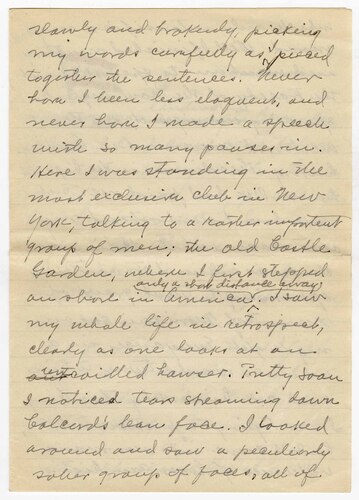 slowly and brokenly, picking
my words carefully as I pieced
together the sentences. Never
have I been less eloquent, and
never have I made a speech
with so many pauses in.
Here I was standing in the
most exclusive club in New
York, talking to a rather important
group of men; the old Castle
Garden, where I first stepped
only a short distance away;
on shore in America. I saw
my whole life in retrospect,
clearly as one looks at an
uncoilled hawser. Pretty soon
I noticed tears streaming down
Colcord's lean face. I looked
around and saw a peculiarly
sober group of faces, all of